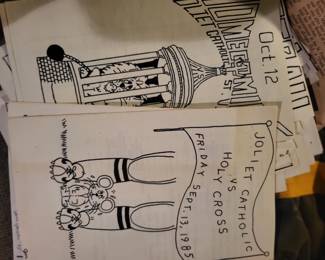 OMECOMI
LIET CATHOLIC
ST
Oct. 12
JOLIET CATHOLIC
VS
HOLY CROSS
FRIDAY SEPT. 13, 1985